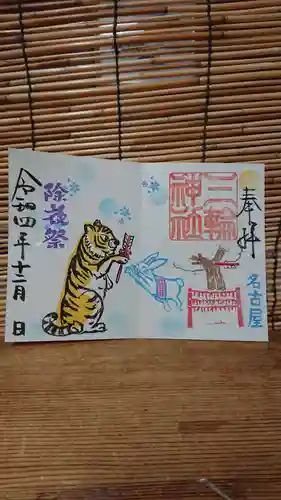 奉拝
三輪
神社
名古屋
除夜祭
令和四年十二月 日